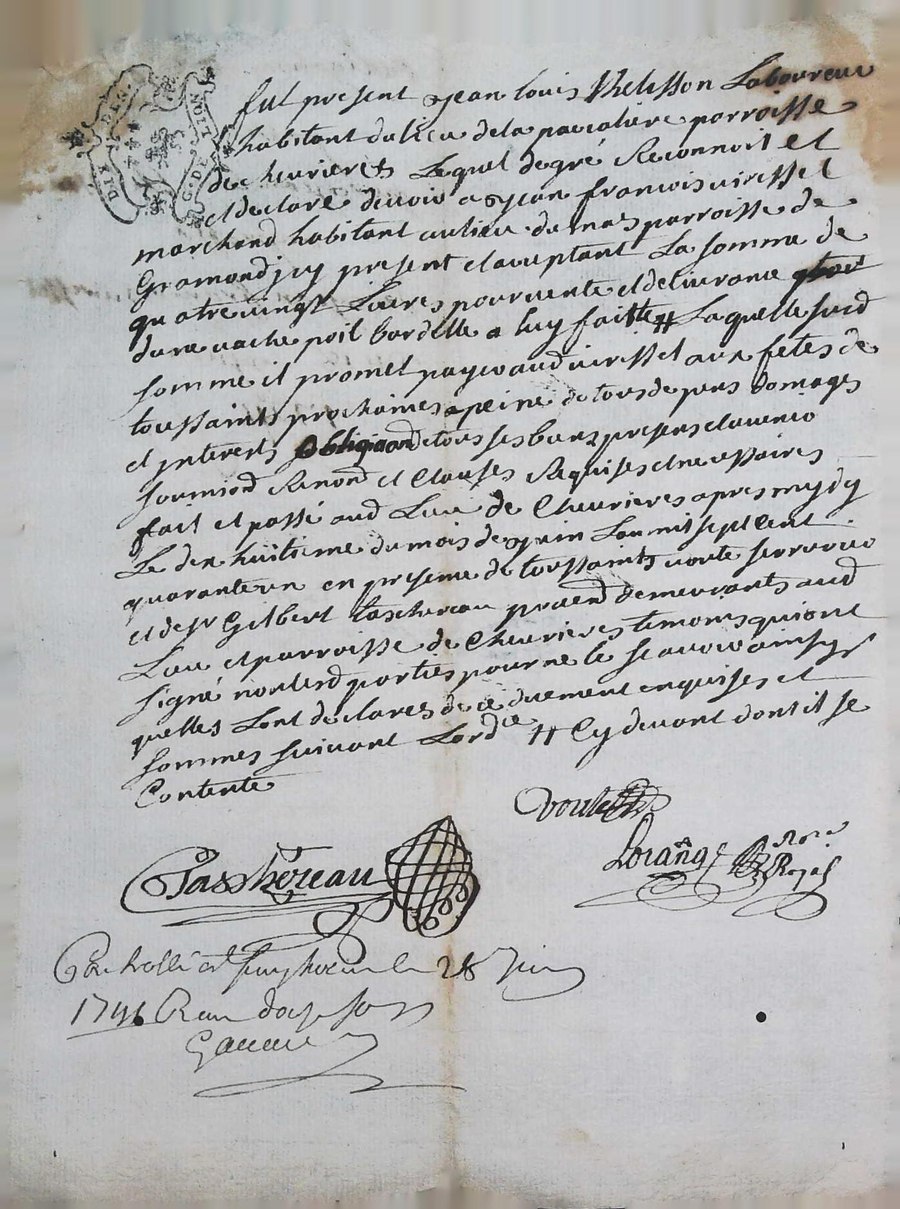 fut present Jean Louis Thelisson Laboureur
habitant du lieu de la pacaliere parroisse
de cheurieres Lequel de gré Reconnoit et
et declare deuoir a Jean francois uirestel
marchand habitant au lieu du mas parroisse de
Gramond jcy present et acceptant La somme de
quatre uingt Liures pour uente et deliurance
dune uache poil bardelle a luy faitte # Laquelle susd
somme il promet payer aud uirestel aux fêtes de
toussaints prochaines a peine de tous depens domages
et jnterets obligaon de tous ses biens presens et auenir
soumisons Renond et Clauses Requises et necessaires
fait et passé aud Lieu de Cheurieres apres mydy
Le dix huitieme du mois de Juin Lan mil sept cent
quarante un en presence de toussaints uoute serrurier
et de sr Gilbert taschereau praend demeurants aud
Lieu et parroisse de Cheurieres temoins qui ont
signé non lesd parties pour ne le scauoir ainsy
quelles Lont declarés de ce duement enquises et
sommes suiuant Lordce # Cy deuant dont il se
Contente
Voute
Taschereau
Lorange Nore Royal
Controllé a le 28 Juin
1741 R